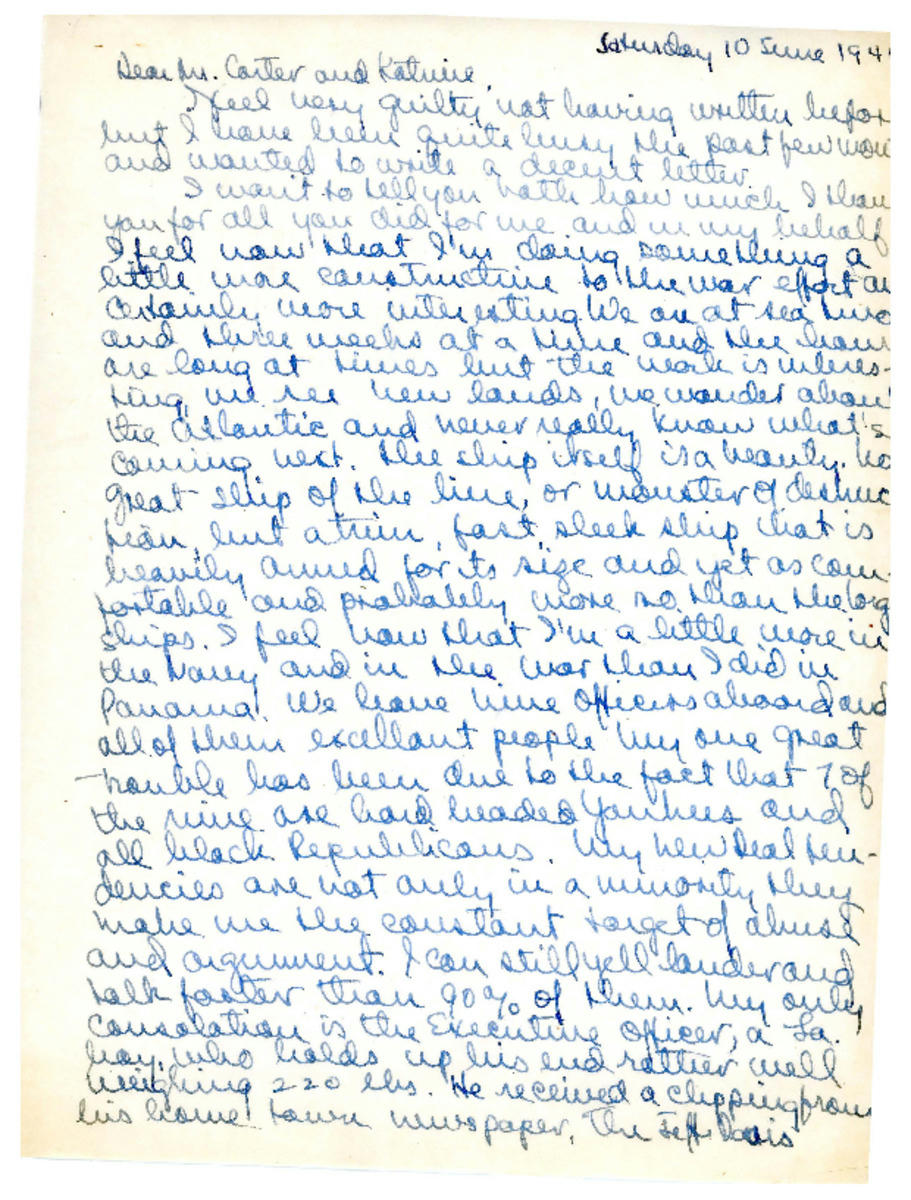 Saturday 10 June 194
Dear Mr. Carter and Katrine
I feel very guilty not having written befor
but I have been quite busy the past few mon
and wanted to write a decent letter.
I want to tell you both how much I than
you for all you did for me and in my behalf
I feel now that I'm doing something a
little more constructive to the war effort an
certainly more interesting. We are at sea two
and three weeks at a time and the hours
are long at times but the work is interes-
ting, we see new lands, we wander about
the Atlantic and never really know what's
coming next. The ship itself is a beauty. no
great ship of the line, or monster of destruc
tion, but a trim, fast, sleek ship that is
heavily armed for its size and yet as com-
fortable and probably more so than the larg
ships. I feel now that I'm a little more in
the Navy and in the war than I did in
Panama. We have nine officers aboard and
all of them excellant people. My one great
trouble has been due to the fact that 7 of
the nine are hard headed Yankees and
all black Republicans. My new deal ten-
dencies are not only in a minority they
make me the constant target of abuse
and argument. I can still yell louder and
talk faster than 90% of them. My only
consolation is the Executive Officer, a La.
boy, who holds up his end rather well
weighing 220 lbs. He received a clipping from
his home town newspaper, The Jeff Davis